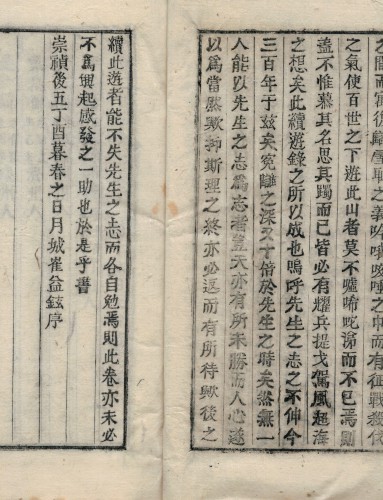 之間而雪復歸雪耻之義吟哦咳唾之中而有從戰殺伐
之氣使百世之下遊此山者莫不噓唏咜涕而不已焉則
蓋不惟慕其名思其躅而已皆必有耀兵提戈駕風超海
之想矣此續遊錄之所以成也嗚呼先生之志之不伸今
三百年于玆矣寃讎之深又十倍於先生之時矣然無一
人能以先生之志爲志者豈天亦有所未勝而人心遂
以爲當然歟抑斯理之終亦必返而有所待歟後之
續此遊者能不失先生之志而各自勉焉則此卷亦未必
不爲興起感發之一助也於是乎書
崇禎後五丁酉暮春之日月城崔益鉉序